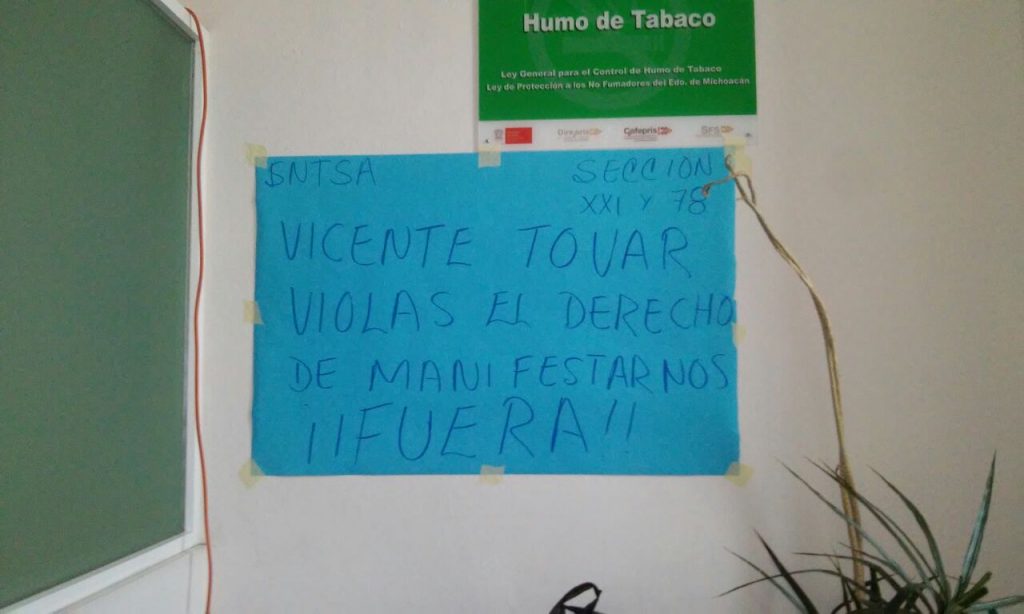 Humo de Tabaco
Ley General para el Control de Humo de Tabaco
Ley de Protección a los No Fumadores del Edo. de Michoacán
Cofepris SFS
SNTSA SECCION
XXI Y 78
VICENTE TOVAR
VIOLAS EL DERECHO
DE MANIFESTARNOS
¡¡FUERA!!